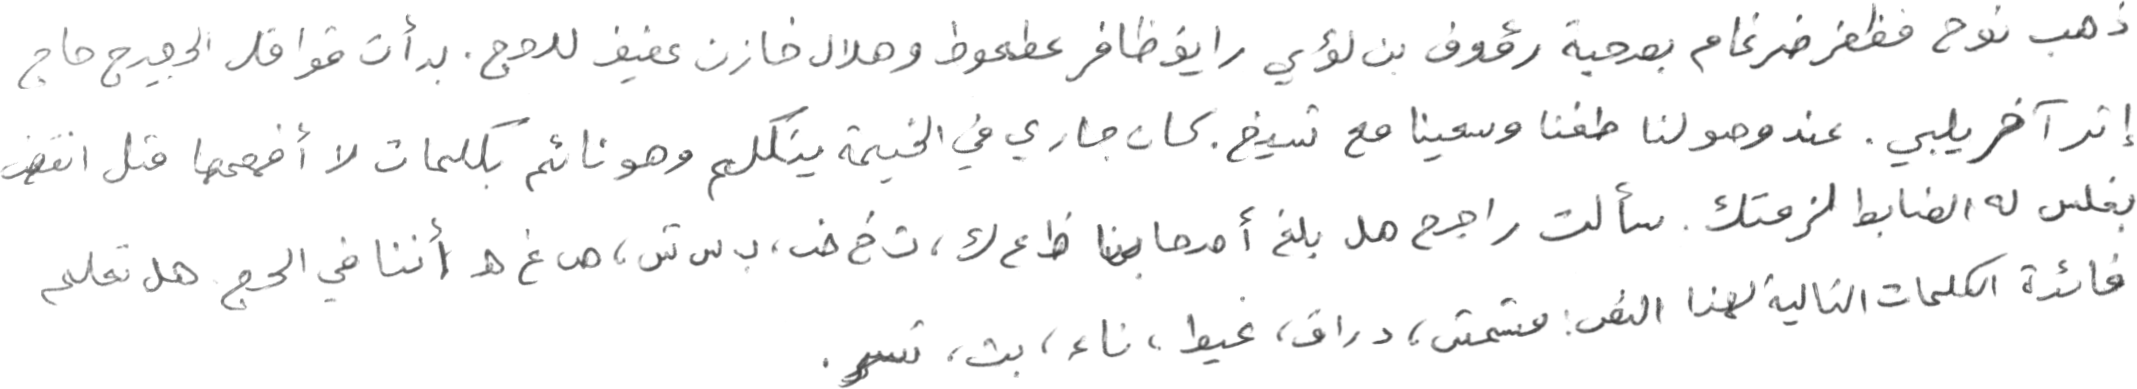 ذهب نوح فظفر ضرغام بصحبة رؤوف بن لؤي رايف ظافر عطعوط وهلال خازن عفيف للحج. بدأت قوافل الحجيج حاج
إثر آخر يلبي. عند وصولنا طفنا وسعينا مع شيخ. كان جاري في الخيمة يتكلم وهو نائم بكلمات لا أفهمها مثل انقض
بغلس له الضابط لزمتك. سألت راجح هل بلغ أصحابنا ظ ع ك، ث خ ض، ب س ش، ص غ ه أننا في الحج. هل تعلم
فائدة الكلمات التالية لهذا النص: مشمش، دراق، غيط، ناء، بث،